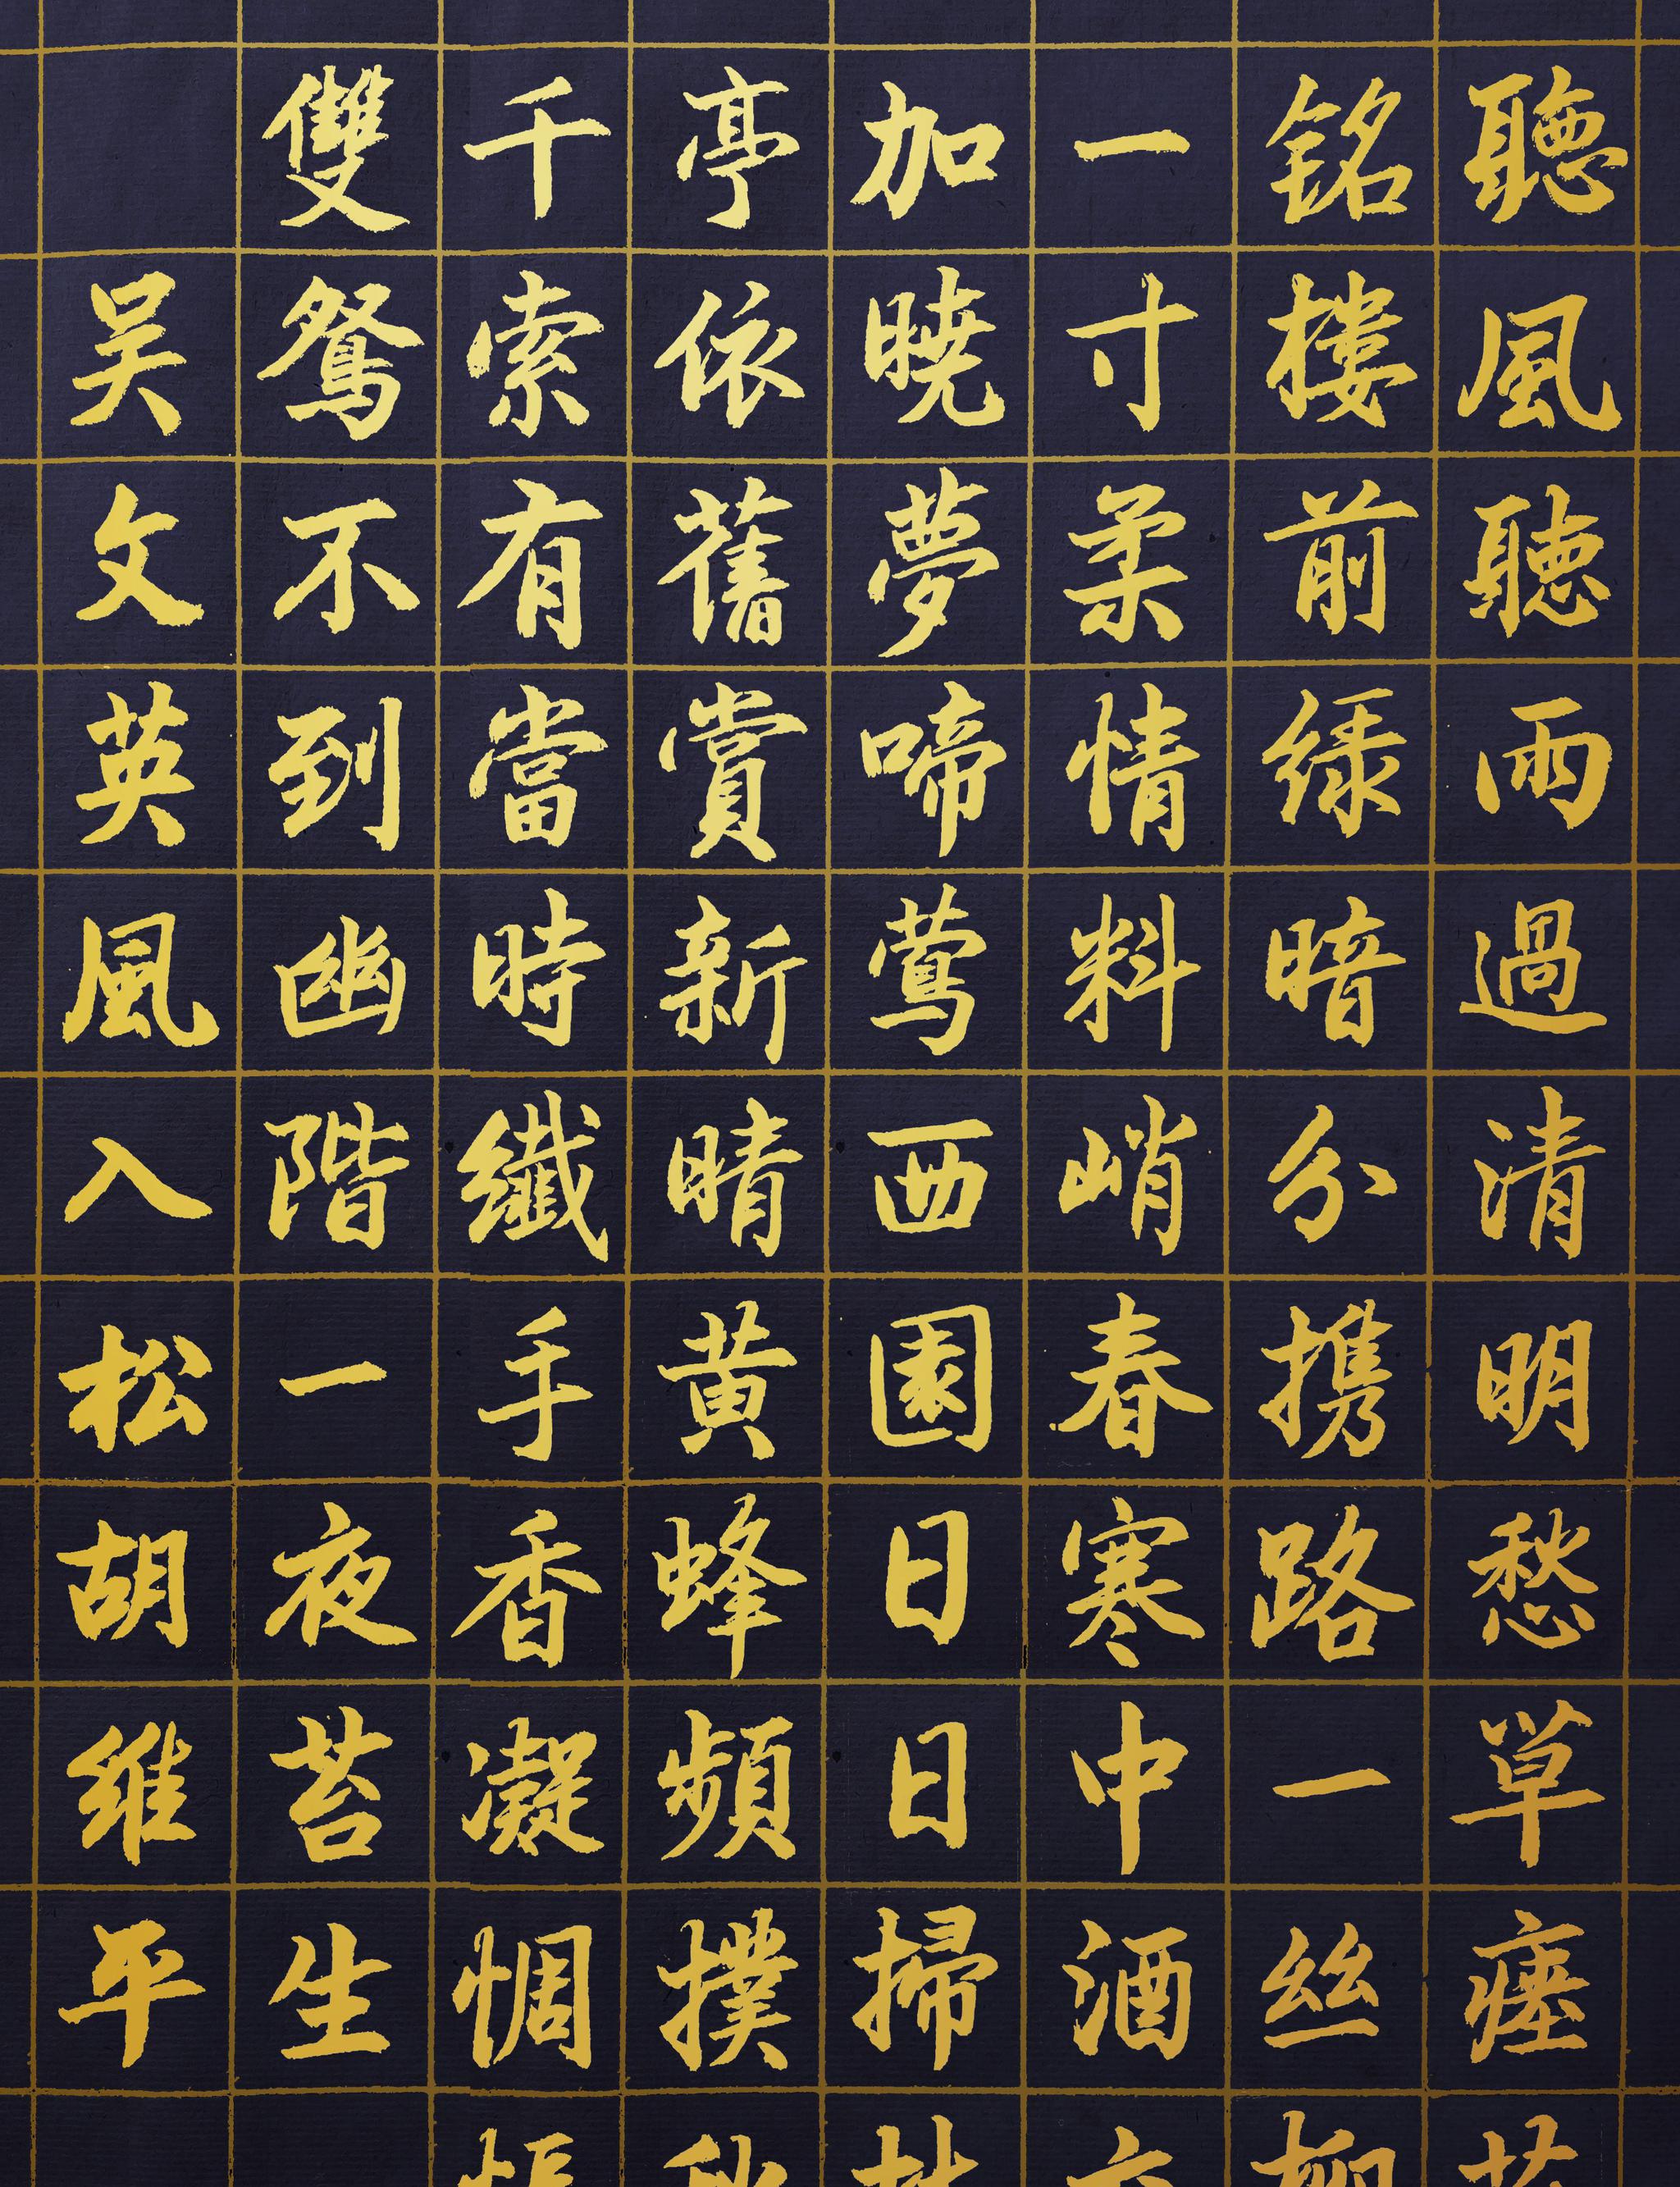 聽風聽雨過清明愁草瘞
銘樓前緑暗分携路一絲
一寸柔情料峭春寒中酒
加暁夢啼鶯西園日日掃
亭依舊賞新晴黄蜂頻撲
千索有當時纖手香凝惆
雙鴛不到幽階一夜苔生
吴文英風入松胡維平